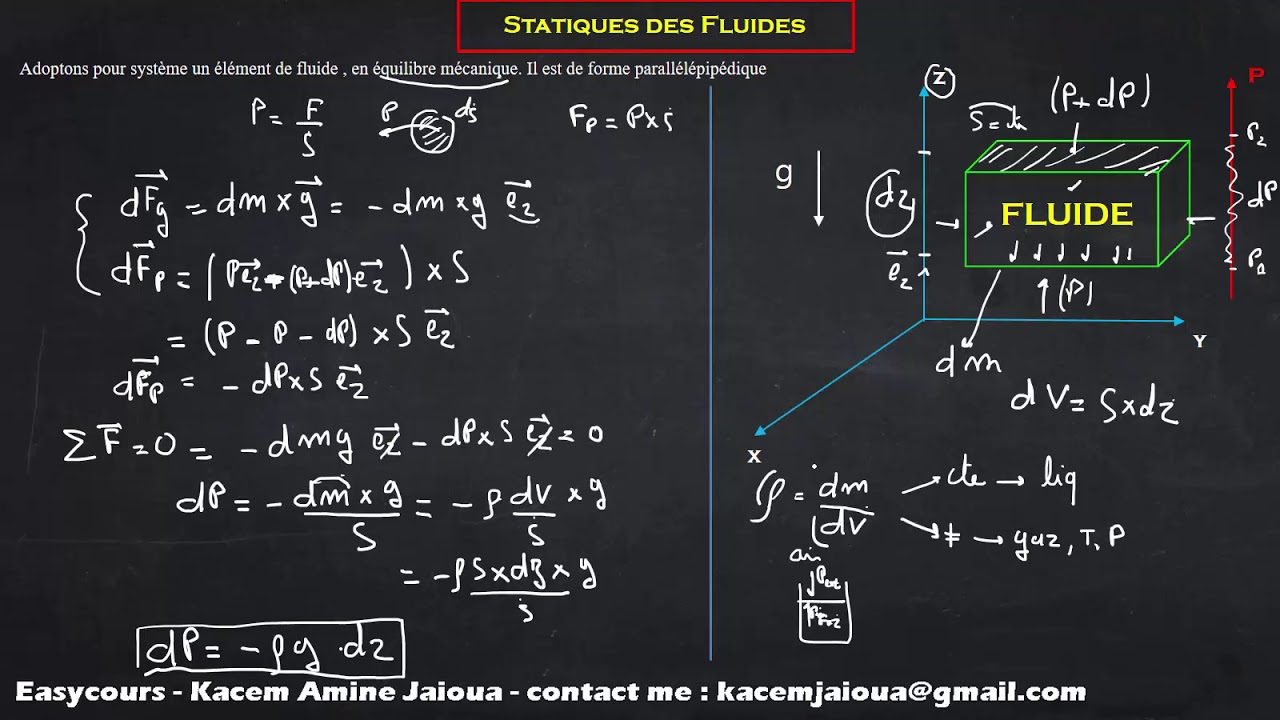 STATIQUES DES FLUIDES
Adoptons pour système un élément de fluide , en équilibre mécanique. Il est de forme parallélépipédique
P = F/S
P dS
Fp = P x S
dFg = dm x g = - dm x g ez
dFp = (P ez - (P + dP) ez) x S
= (P - P - dP) x S ez
dFp = - dP x S ez
Σ F = 0 = - dm g ez - dP x S ez = 0
dP = - dm x g / S = - ρ dV/S x g
= - ρ S x dz x g / S
dP = - ρ g · dz
g
Z
dz
ez
S = cte
(P + dP)
FLUIDE
(P)
dm
Y
X
P
P2
dP
dV = S x dz
ρ = dm/dV
cte → liq
≠ → gaz, T, P
air
Easycours - Kacem Amine Jaioua - contact me : kacemjaioua@gmail.com